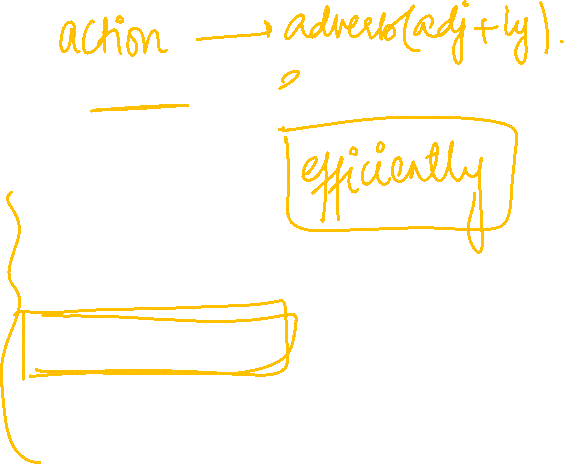 action → adverb(adj+ly).
efficiently